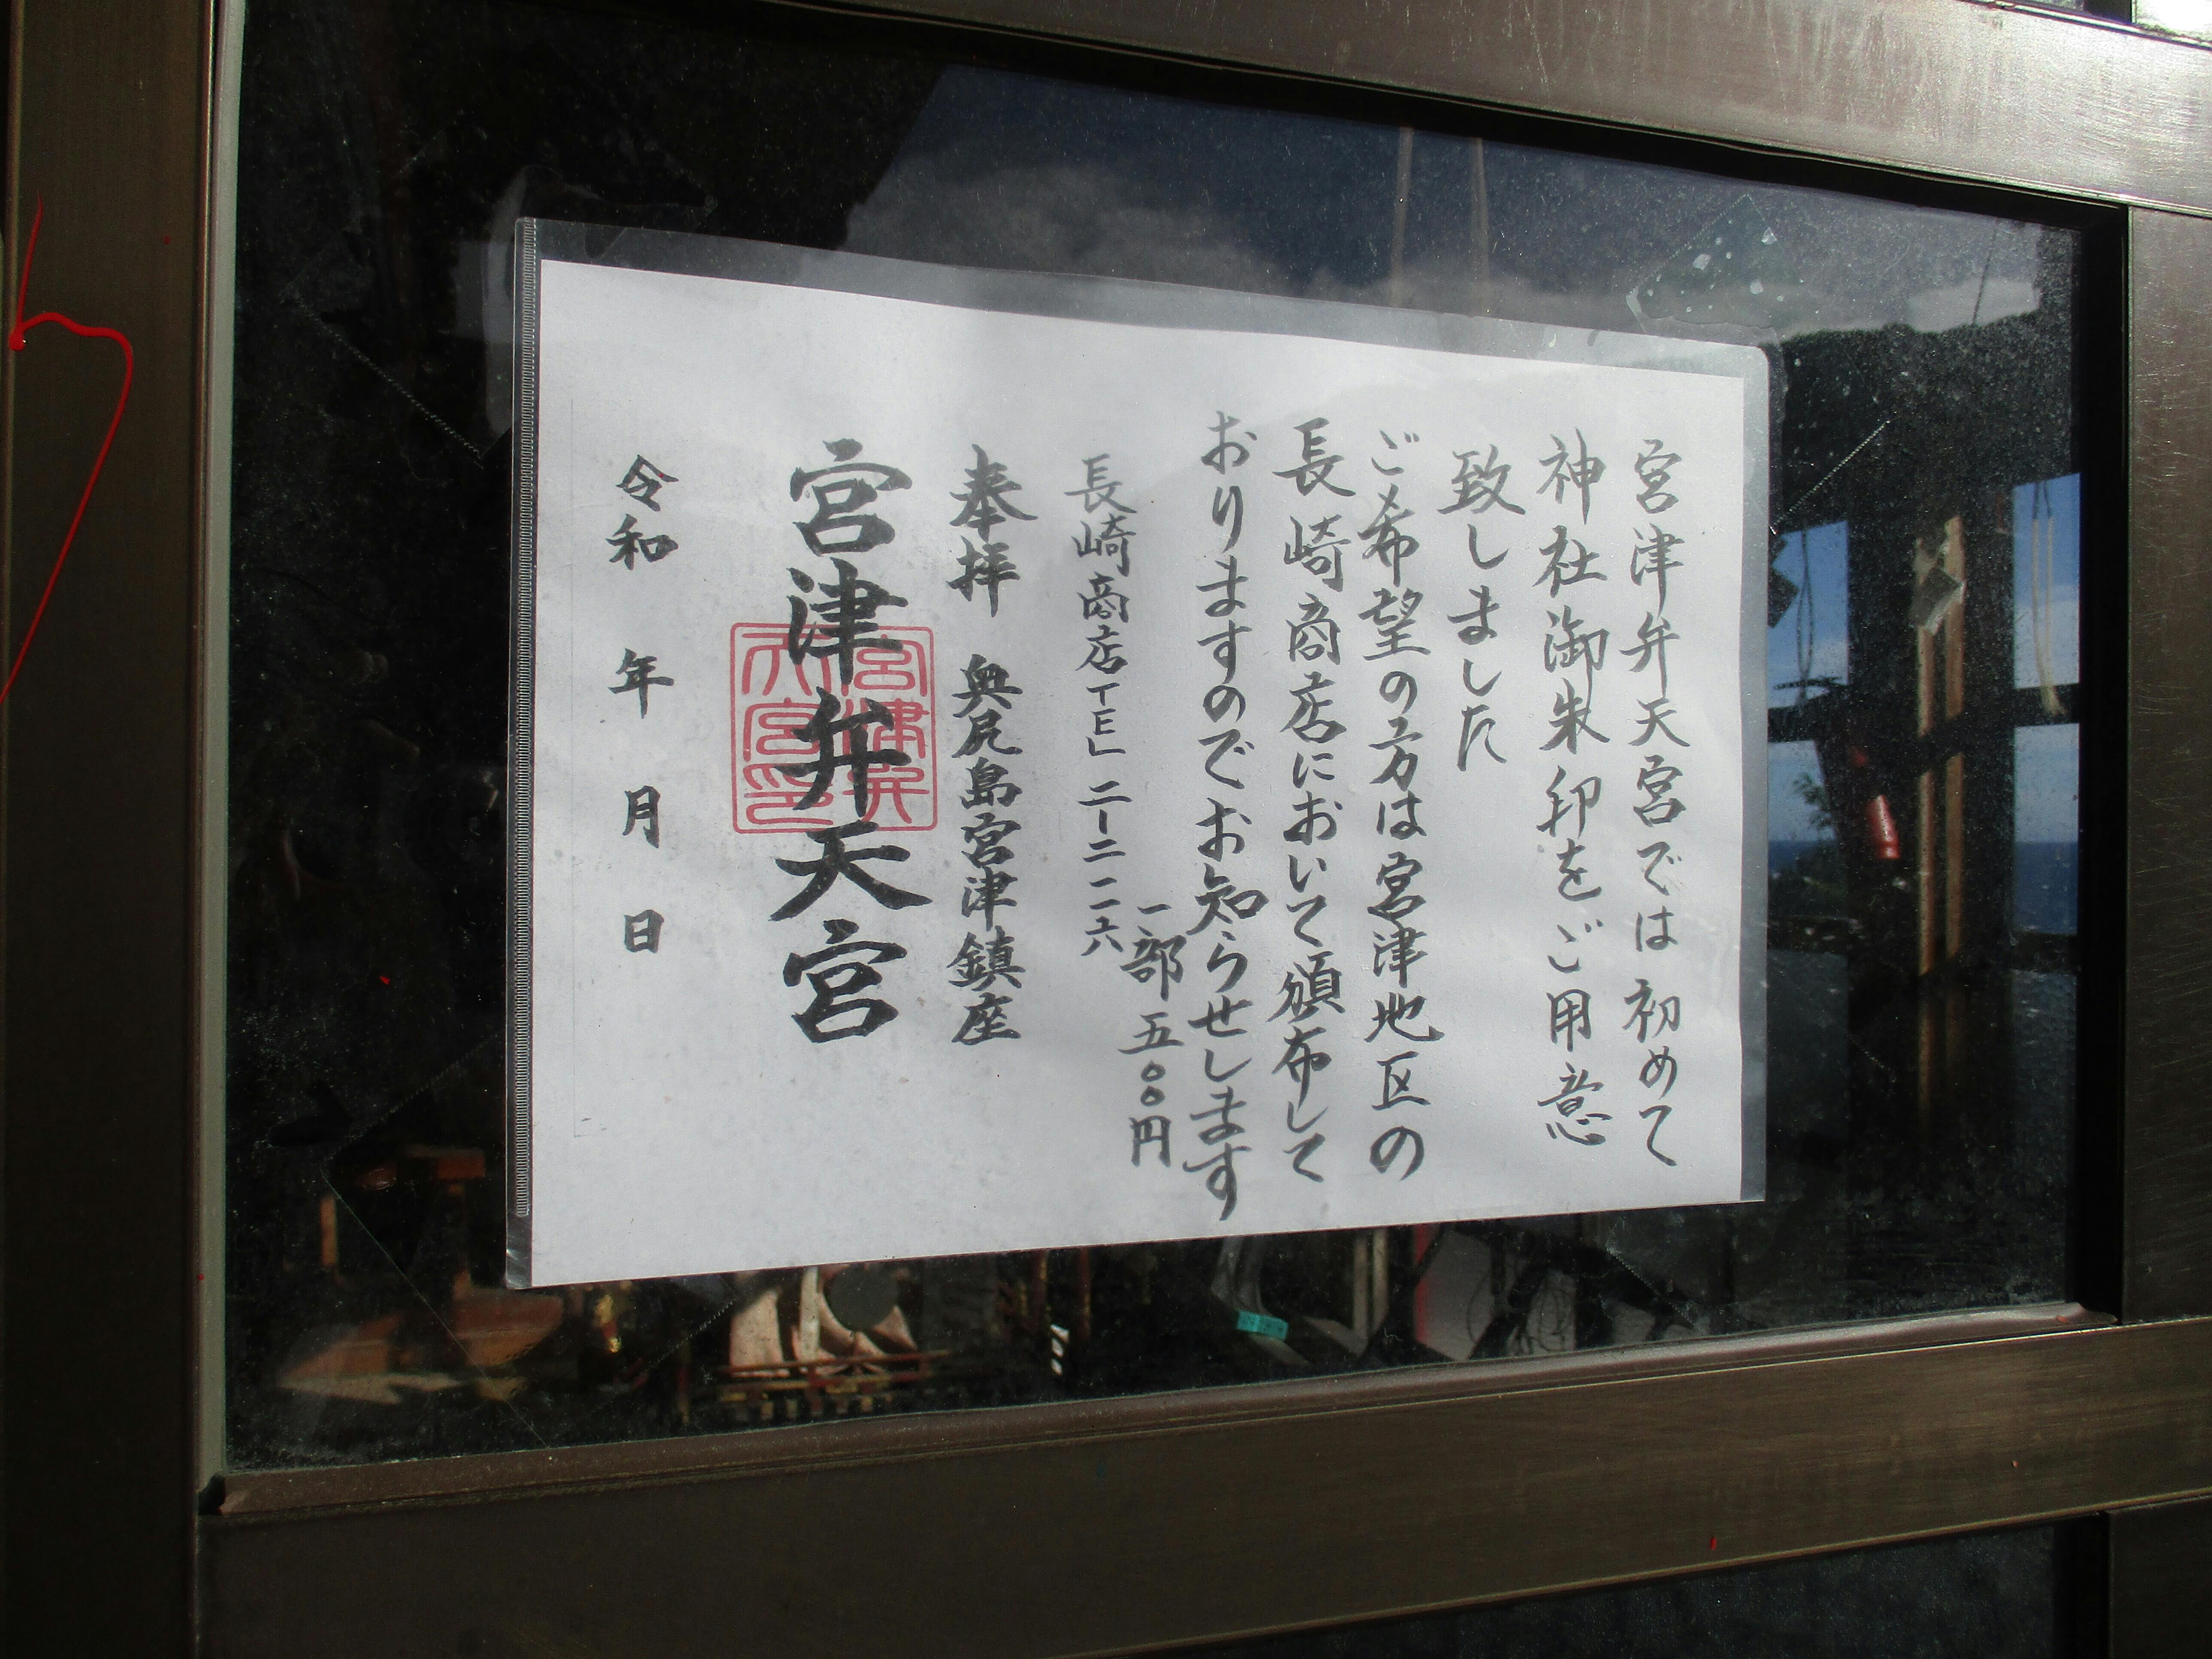 宮津弁天宮では初めて
神社御朱印をご用意
致しました
ご希望の方は宮津地区の
長崎商店において頒布して
おりますのでお知らせします
一部五〇〇円
長崎商店TEL二ー二二二六
奉拝 奥尻島宮津鎮座
宮津弁天宮
宮津弁
天宮印
令和 年 月 日